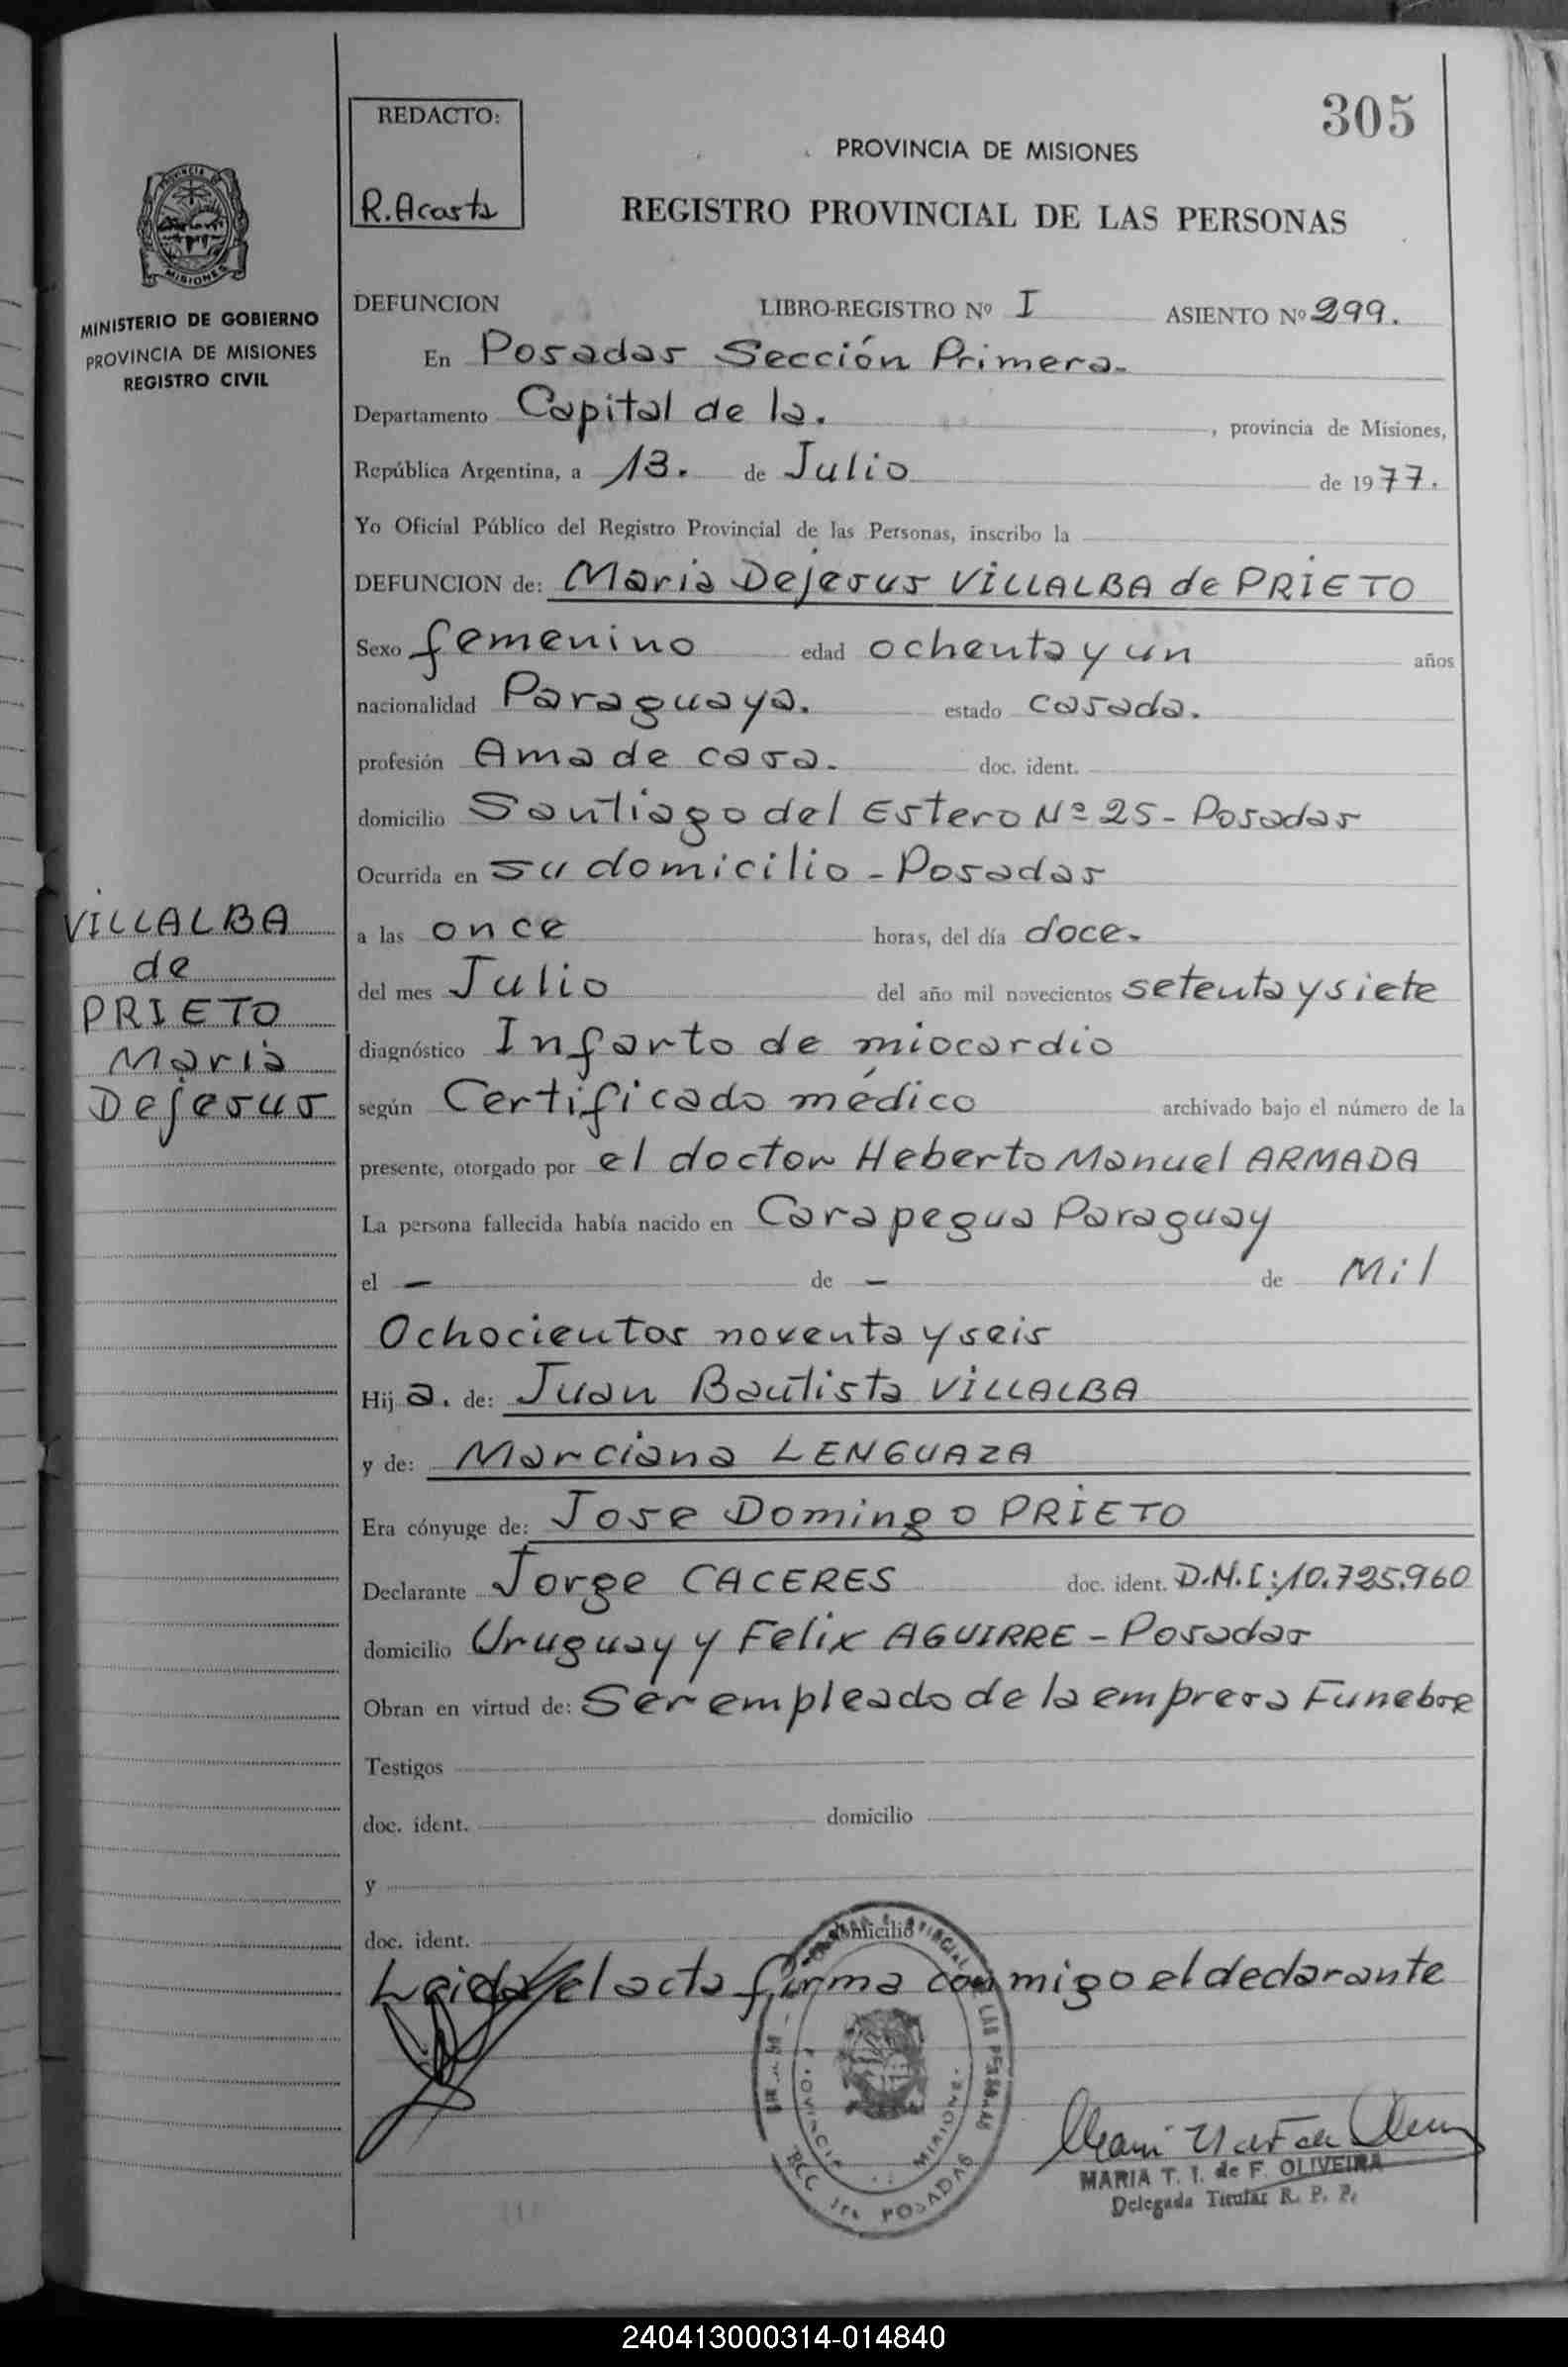 305
REDACTO:
R. Acosta
PROVINCIA DE MISIONES
REGISTRO PROVINCIAL DE LAS PERSONAS
PROVINCIA DE
MISIONES
MINISTERIO DE GOBIERNO
PROVINCIA DE MISIONES
REGISTRO CIVIL
DEFUNCION LIBRO-REGISTRO Nº I ASIENTO Nº 299.
En Posadas Sección Primera-
Departamento Capital de la. , provincia de Misiones,
República Argentina, a 13. de Julio de 1977.
Yo Oficial Público del Registro Provincial de las Personas, inscribo la
DEFUNCION de: Maria Dejesus VILLALBA de PRIETO
Sexo femenino edad ochenta y un años
nacionalidad Paraguaya. estado casada.
profesión Ama de casa. doc. ident.
domicilio Santiago del Estero Nº 25 - Posadas
Ocurrida en su domicilio - Posadas
a las once horas, del día doce-
del mes Julio del año mil novecientos setenta y siete
diagnóstico Infarto de miocardio
según Certificado médico archivado bajo el número de la
presente, otorgado por el doctor Heberto Manuel ARMADA
La persona fallecida había nacido en Carapegua Paraguay
el - de - de Mil
Ochocientos noventa y seis
Hij a. de: Juan Bautista VILLALBA
y de: Marciana LENGUAZA
Era cónyuge de: Jose Domingo PRIETO
Declarante Jorge CACERES doc. ident. D.N.I: 10.725.960
domicilio Uruguay y Felix AGUIRRE - Posadas
Obran en virtud de: Ser empleado de la empresa Funebre
Testigos
doc. ident. domicilio
y
doc. ident. domicilio
Leida el acta firma conmigo el declarante
VILLALBA
de
PRIETO
Maria
Dejesus
LAS PERSONAS
PROVINCIA MISIONES
POSADAS
MARIA T. I. de F. OLIVEIRA
Delegada Titular R. P. P.
240413000314-014840